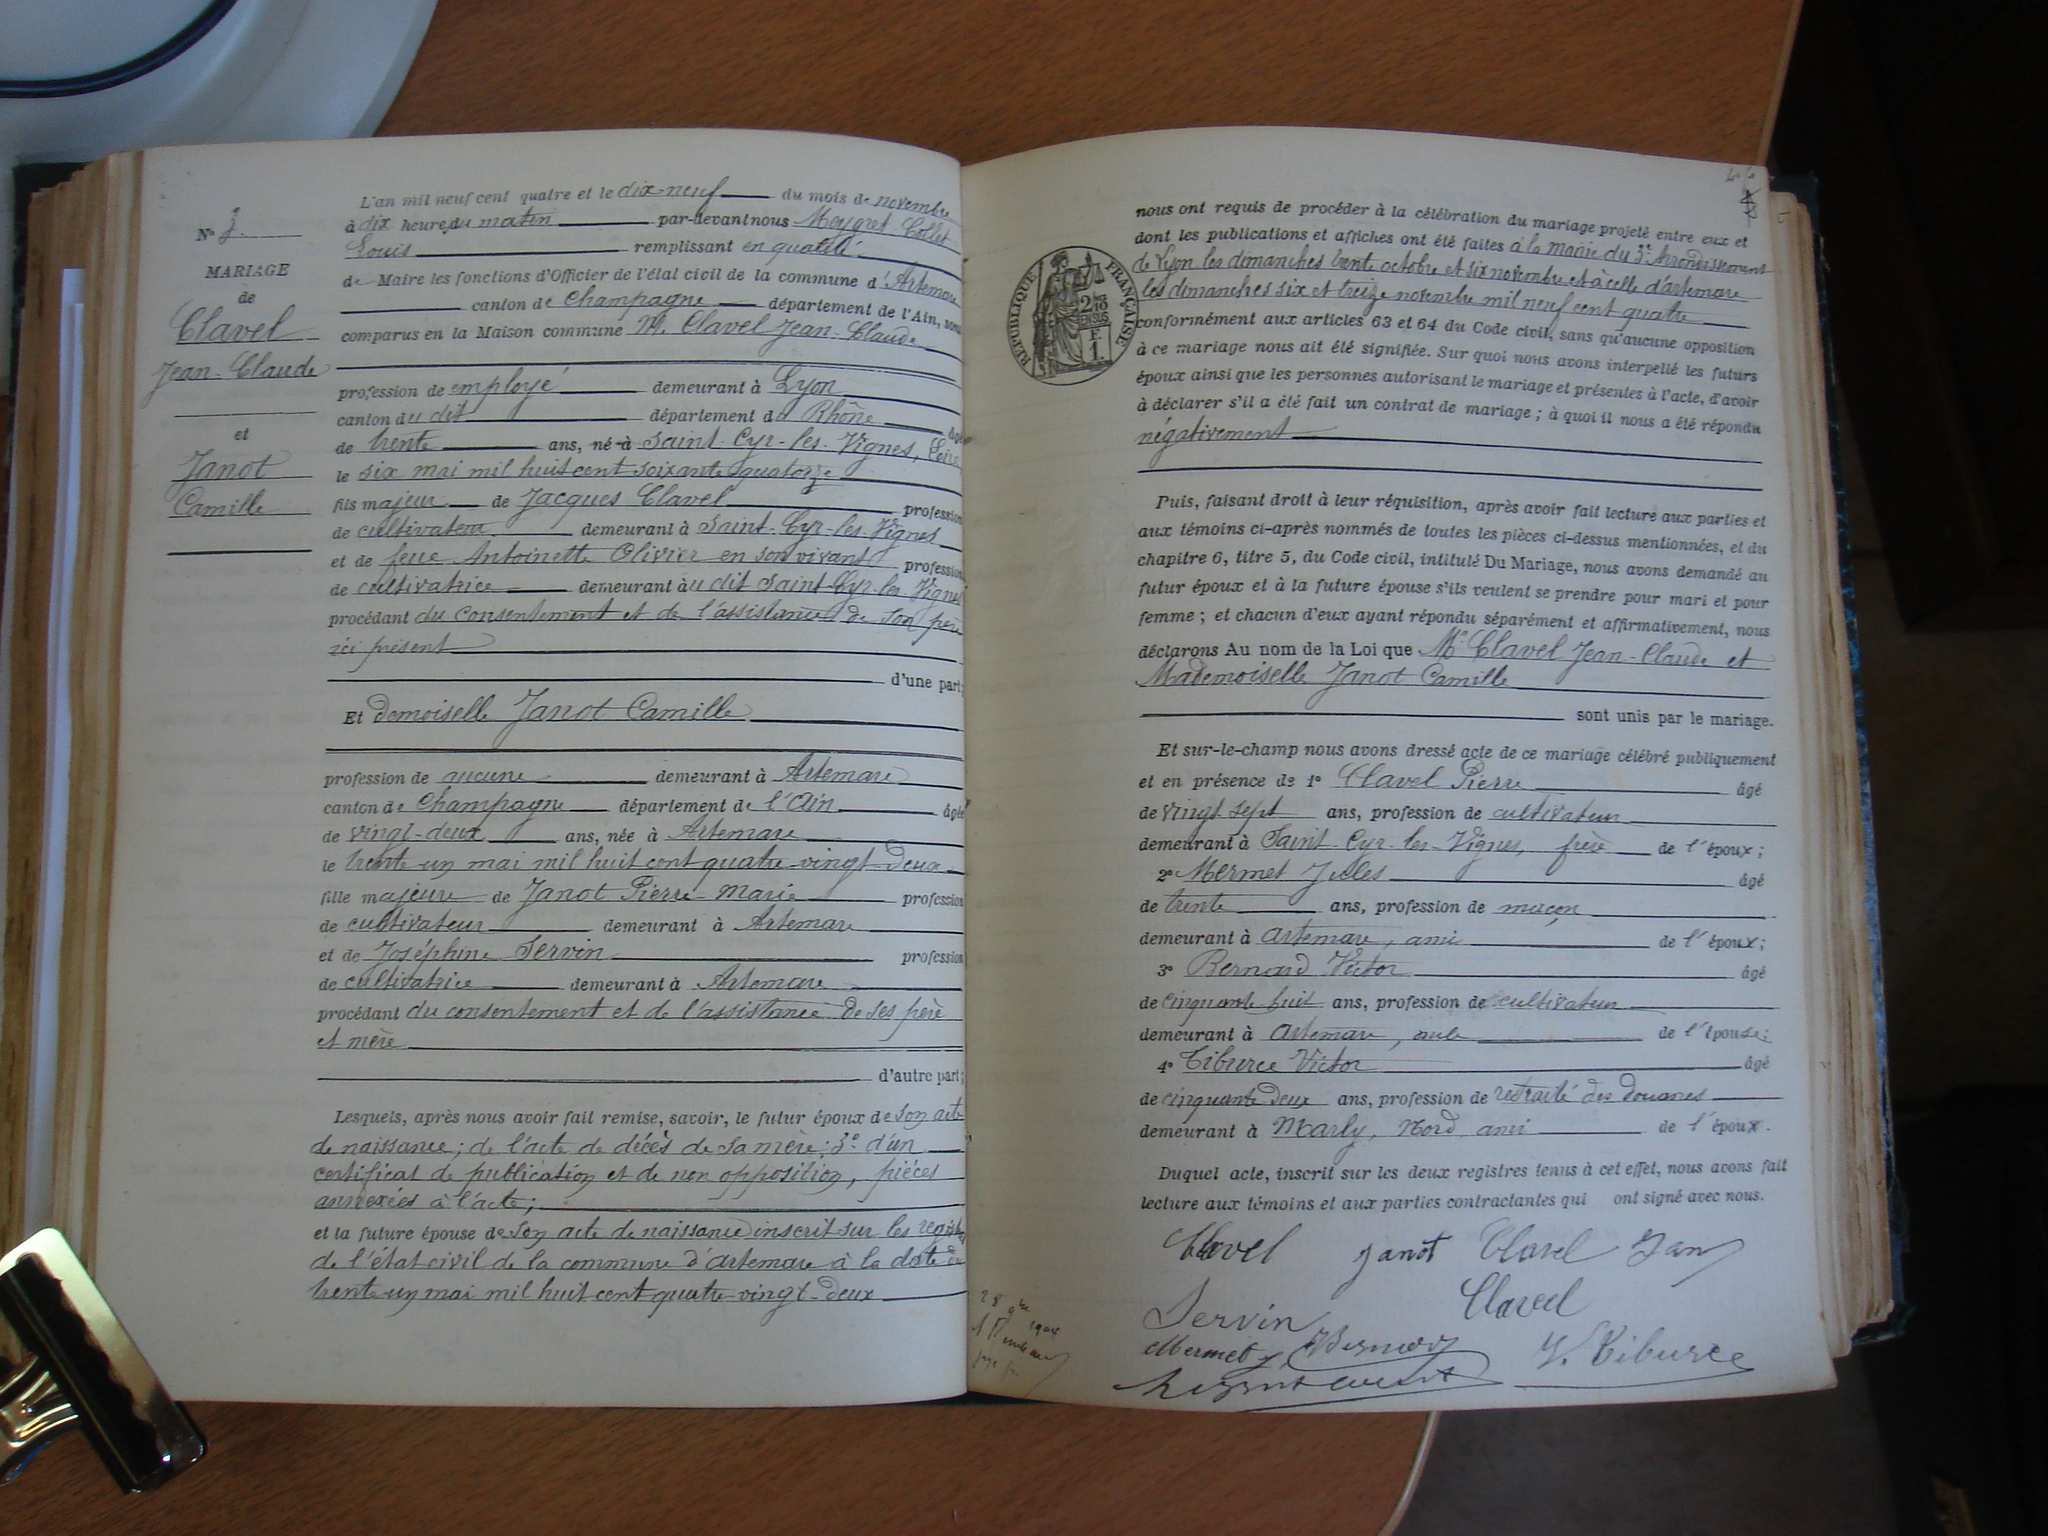 N° 3
MARIAGE
de
Clavel
Jean-Claude
et
Janot
Camille
L'an mil neuf cent quatre et le dix-neuf du mois de novembre
à dix heures du matin par-devant nous Meygret Collet
Louis remplissant en qualité
de Maire les fonctions d'Officier de l'état civil de la commune d'Artemare
canton de Champagne département de l'Ain, sont
comparus en la Maison commune M. Clavel Jean-Claude
profession de employé demeurant à Lyon
canton du dit département du Rhône âgé
de trente ans, né à Saint-Cyr-les-Vignes, Loire
le six mai mil huit cent soixante quatorze
fils majeur de Jacques Clavel profession
de cultivateur demeurant à Saint-Cyr-les-Vignes
et de feue Antoinette Olivier en son vivant profession
de cultivatrice demeurant à u dit Saint-Cyr-les-Vignes
procédant du consentement et de l'assistance de son père
ici présent
d'une part;
Et demoiselle Janot Camille
profession de aucune demeurant à Artemare
canton de Champagne département de l'Ain âgée
de vingt-deux ans, née à Artemare
le trente-un mai mil huit cent quatre-vingt-deux
fille majeure de Janot Pierre-Marie profession
de cultivateur demeurant à Artemare
et de Joséphine Servin profession
de cultivatrice demeurant à Artemare
procédant du consentement et de l'assistance de ses père
et mère
d'autre part;
Lesquels, après nous avoir fait remise, savoir, le futur époux de son acte
de naissance; de l'acte de décès de sa mère; 3° d'un
certificat de publication et de non opposition, pièces
annexées à l'acte;
et la future épouse de son acte de naissance inscrit sur les registres
de l'état civil de la commune d'Artemare à la date du
trente-un mai mil huit cent quatre-vingt-deux
nous ont requis de procéder à la célébration du mariage projeté entre eux et
dont les publications et affiches ont été faites à la mairie du 3e Arrondissement
de Lyon les dimanches trente octobre et six novembre et à celle d'Artemare
les dimanches six et treize novembre mil neuf cent quatre
conformément aux articles 63 et 64 du Code civil, sans qu'aucune opposition
à ce mariage nous ait été signifiée. Sur quoi nous avons interpellé les futurs
époux ainsi que les personnes autorisant le mariage et présentes à l'acte, d'avoir
à déclarer s'il a été fait un contrat de mariage; à quoi il nous a été répondu
négativement
RÉPUBLIQUE FRANÇAISE
F
1.
Puis, faisant droit à leur réquisition, après avoir fait lecture aux parties et
aux témoins ci-après nommés de toutes les pièces ci-dessus mentionnées, et du
chapitre 6, titre 5, du Code civil, intitulé Du Mariage, nous avons demandé au
futur époux et à la future épouse s'ils veulent se prendre pour mari et pour
femme; et chacun d'eux ayant répondu séparément et affirmativement, nous
déclarons Au nom de la Loi que Mr Clavel Jean-Claude et
Mademoiselle Janot Camille
sont unis par le mariage.
Et sur-le-champ nous avons dressé acte de ce mariage célébré publiquement
et en présence de 1° Clavel Pierre âgé
de vingt sept ans, profession de cultivateur
demeurant à Saint-Cyr-les-Vignes, frère de l'époux;
2° Mermet Jules âgé
de trente ans, profession de maçon
demeurant à Artemare, ami de l'époux;
3° Bernard Victor âgé
de cinquante huit ans, profession de cultivateur
demeurant à Artemare, oncle de l'épouse;
4° Tiburce Victor âgé
de cinquante deux ans, profession de retraité des douanes
demeurant à Marly, Nord, ami de l'époux.
Duquel acte, inscrit sur les deux registres tenus à cet effet, nous avons fait
lecture aux témoins et aux parties contractantes qui ont signé avec nous.
Clavel Janot Clavel Jan
Servin Clavel
Mermet J. Bernard V. Tiburce
28 9bre
1904